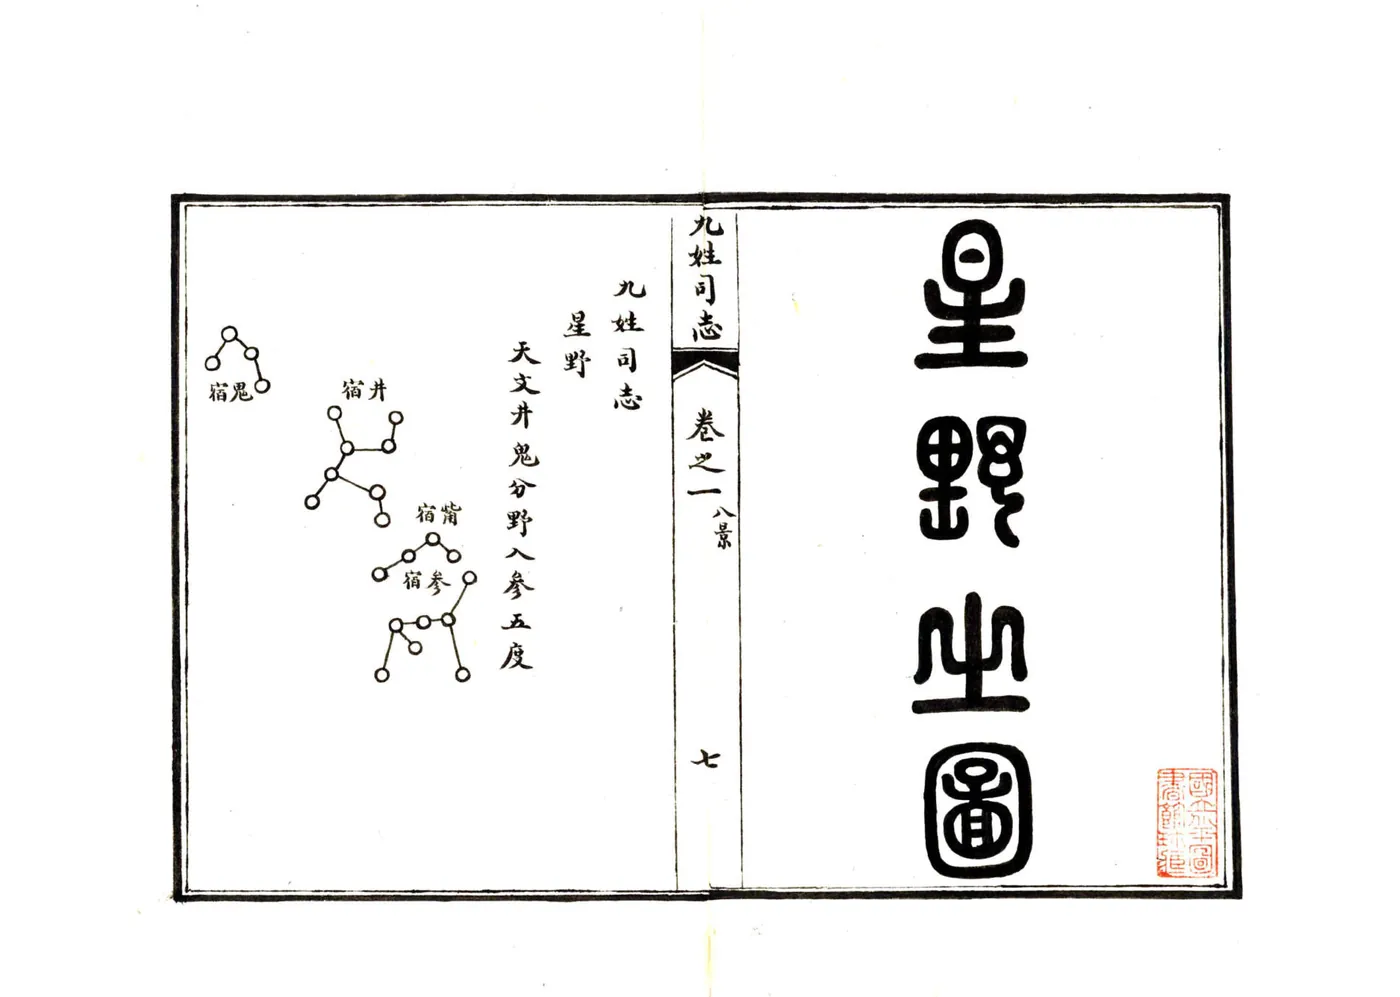 星野之圖
九姓司志
卷之一
八景
七
九姓司志
星野
天文井鬼分野入參五度
宿觜
宿參
宿井
宿鬼